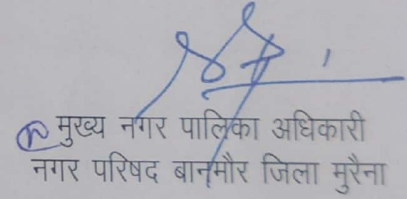 मुख्य नगर पालिका अधिकारी
नगर परिषद बानमौर जिला मुरैना